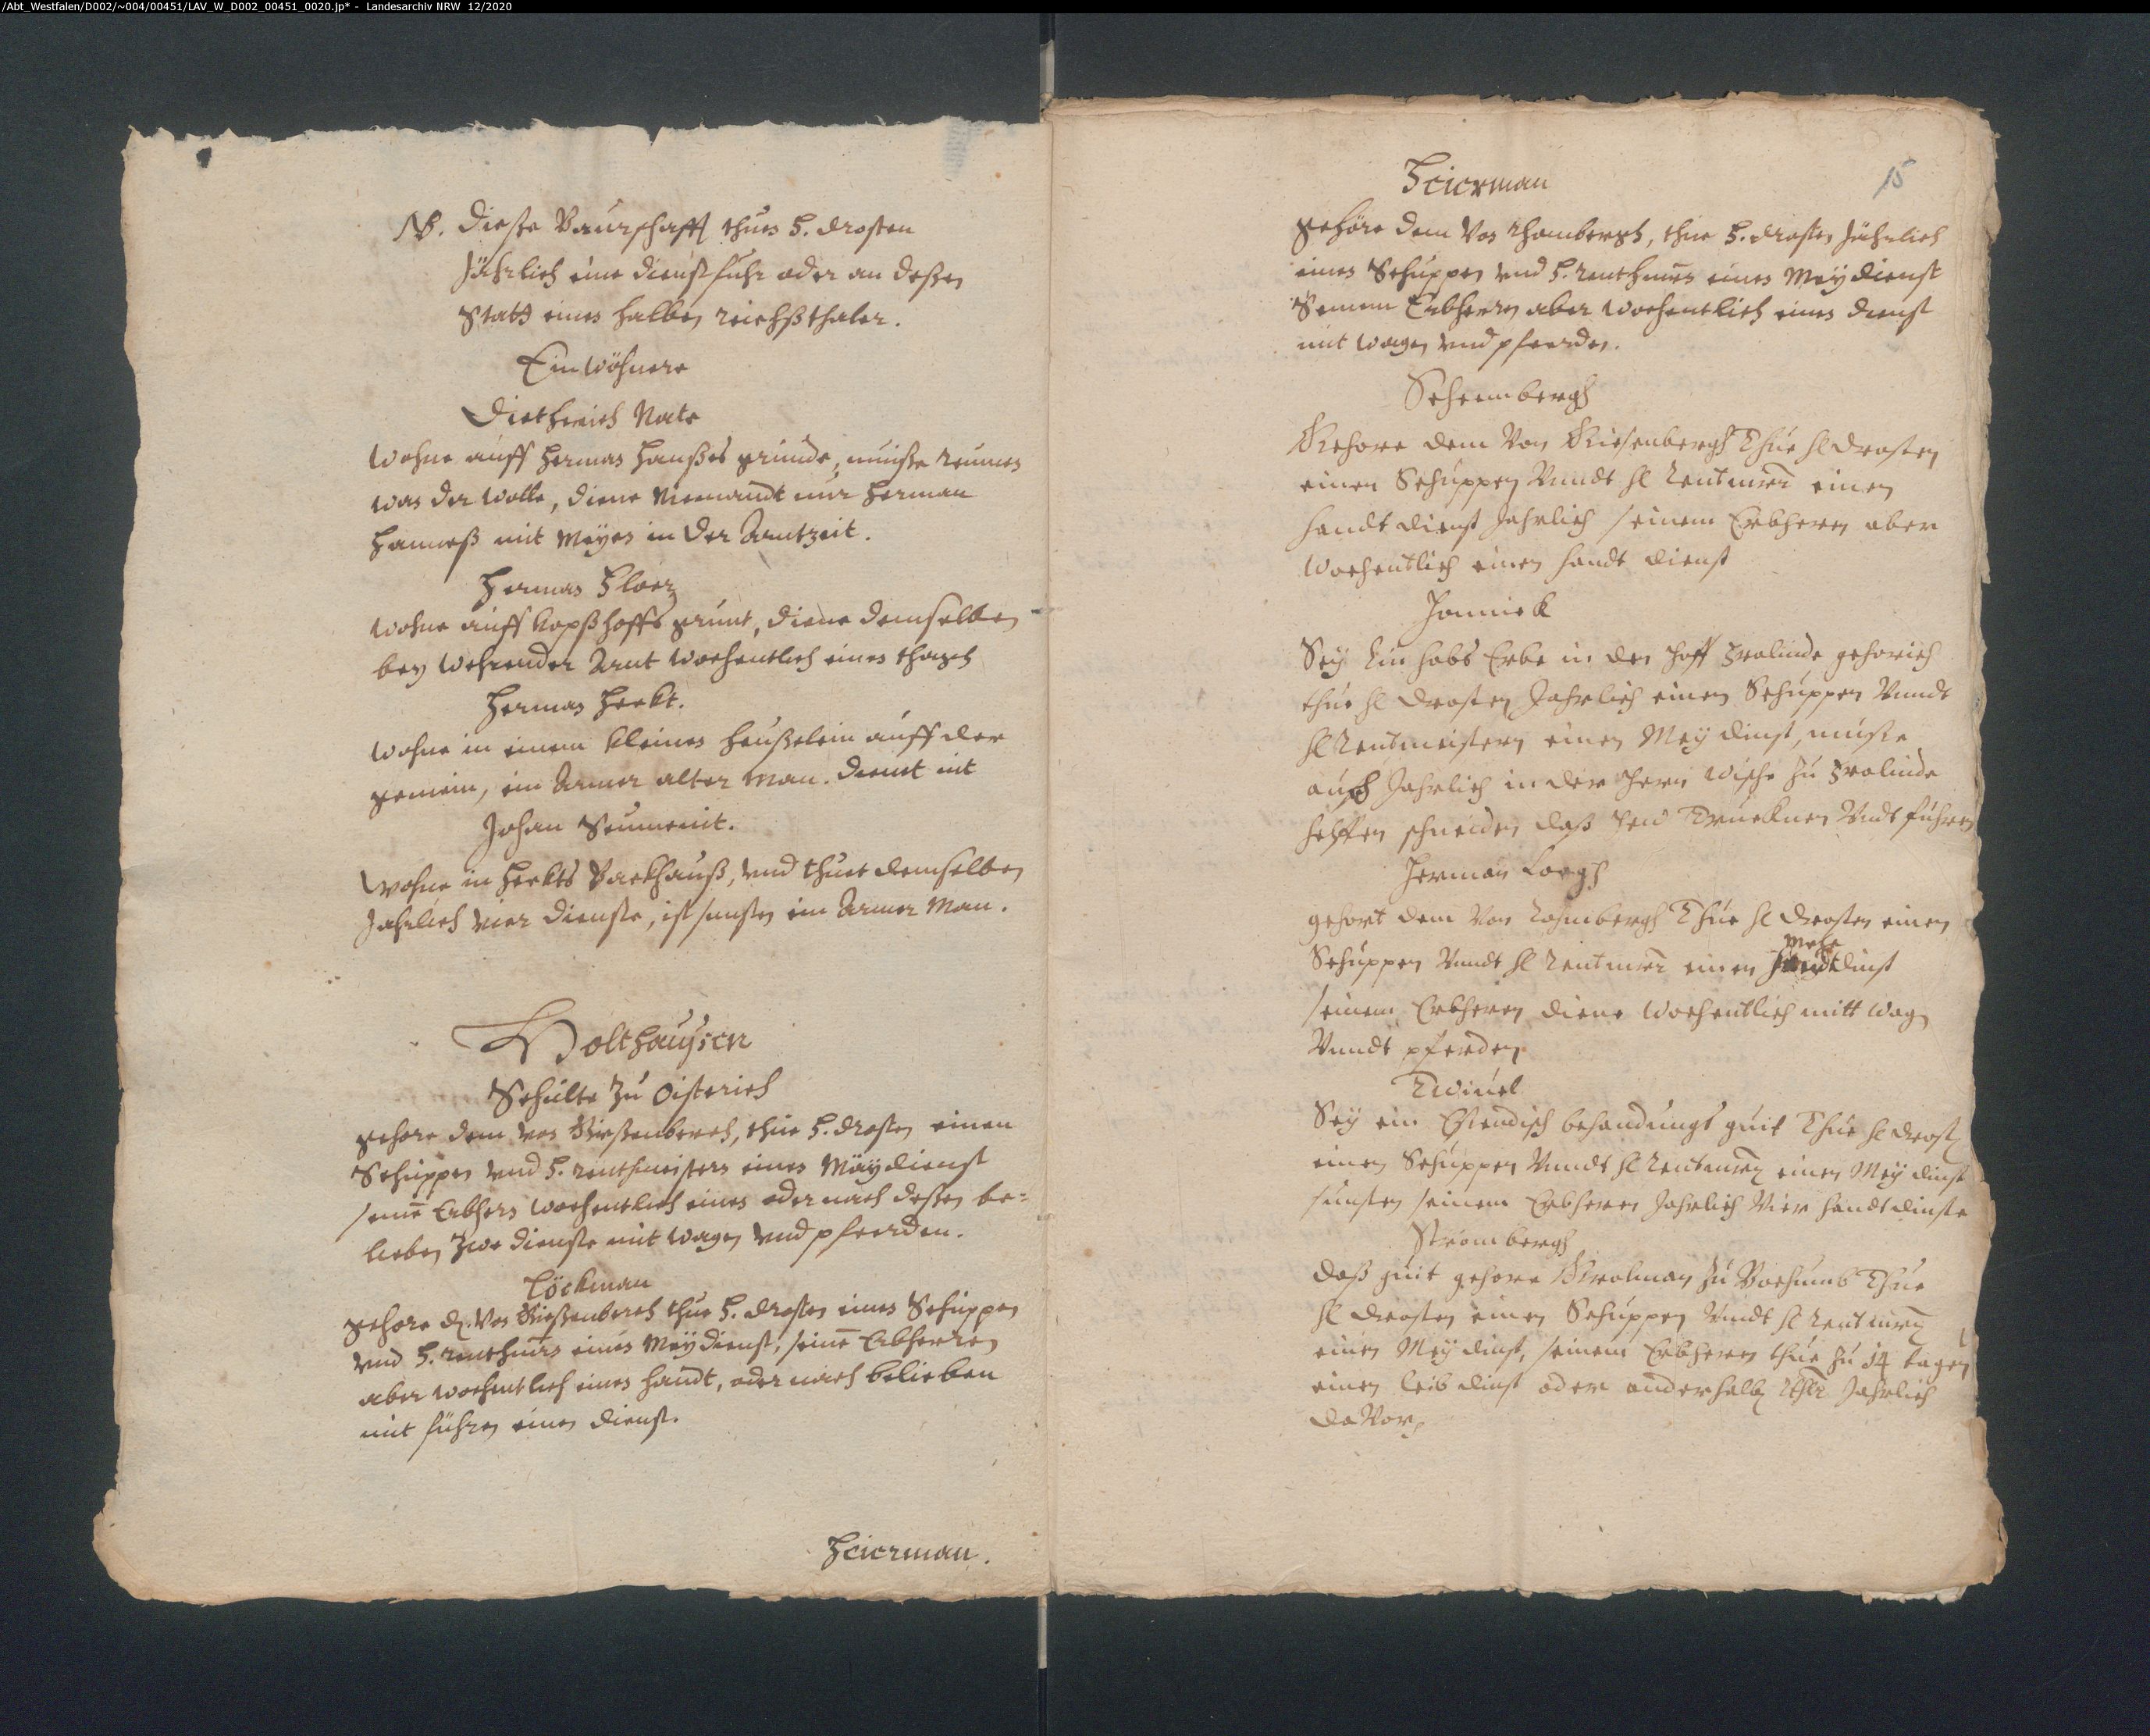 /Abt_Westfalen/D002/~004/00451/LAV_W_D002_00451_0020.jp* - Landesarchiv NRW 12/2020
NB. Dieße Baurschafft thue H. drosten
Jährlich eine dienstfuhr oder an deßen
Statt einen halben reichßthaler.
Einwöhnere
Diethrich Nate
Wohne auff Herman Hanßes grunde, muiße
was der wolle, diene Niemandt nur Herman
Hanneß mit Meyen in der Arntzeit.
Herman
Wohne auff Kopßhoffs grunt, diene demselben
bey wehrender Arnt wochentlich einen thagh
Herman Herkt.
Wohne in einem kleinen heußelein auff der
gemein, ein Armer alter Man. dient nit
Johan
Wohne in Herkts Backhauß, und thuet demselben
Jahrlich vier dienste, ist sunsten ein Armer Man.
Holthauysen
Schulte zu Oisterich
gehore dem von Gießenberch, thue H. drosten einen
Schuppen und H. renthmeistern einen Maydienst
seine Erbhern wochentlich einen oder nach deßen be-
lieben zwe dienste mit wagen und pfeerden.
Löckman
gehore d. von Gießenberch thue H. drosten einen Schuppen
und H. renthmrn einen Meydienst, seine Erbherren
aber wochentlich einen handt, oder nach belieben
mit fuhren einen dienst.
Heierman.
15
Heierman
gehöre dem von thue H. drosten Jährlich
einen Schuppen und H. renthmrn einen Meydienst
Seinem Erbherrn aber wochentlich einen dienst
mit wagen und pfeerden.
Schrimbergh
Gehore dem von Giesenbergh Thue hl drosten
einen Schuppen Unndt hl Rentmr einen
handtdienst Jahrlich seinem Erbheren aber
wochentlich einen handt dienst
Jannick
Sey Ein hobs Erbe in den hoff Frolinde gehorich
thue hl drosten Jahrlich einen Schuppen Unndt
hl Rentmeistern einen Mey dinst, muste
auch Jahrlich in der hern wische zu Frolinde
helffen schneiden daß heu Druecknen Undt fuhren
Herman
gehort dem von Thue hl drosten einen
Schuppen Unndt hl Rentmr einen Meye dinst
seinem Erbheren diene wochentlich mitt wagn
Unndt pferden
Twinel
Sey ein Eßendisch behandungs guit Thue hl drost
einen Schuppen Unndt hl Rentmr einen Mey dinst
sunsten seinem Erbheren Jahrlich Vier handtdinste
Strombergh
Daß guit gehore Grolman zu Bochumb Thue
hl drosten einen Schuppen Unndt hl Rentmr
einen Mey dinst, seinem Erbheren thue zu 14 tagen
einen leib dinst oder anderhalb Jahrlich
da Vor